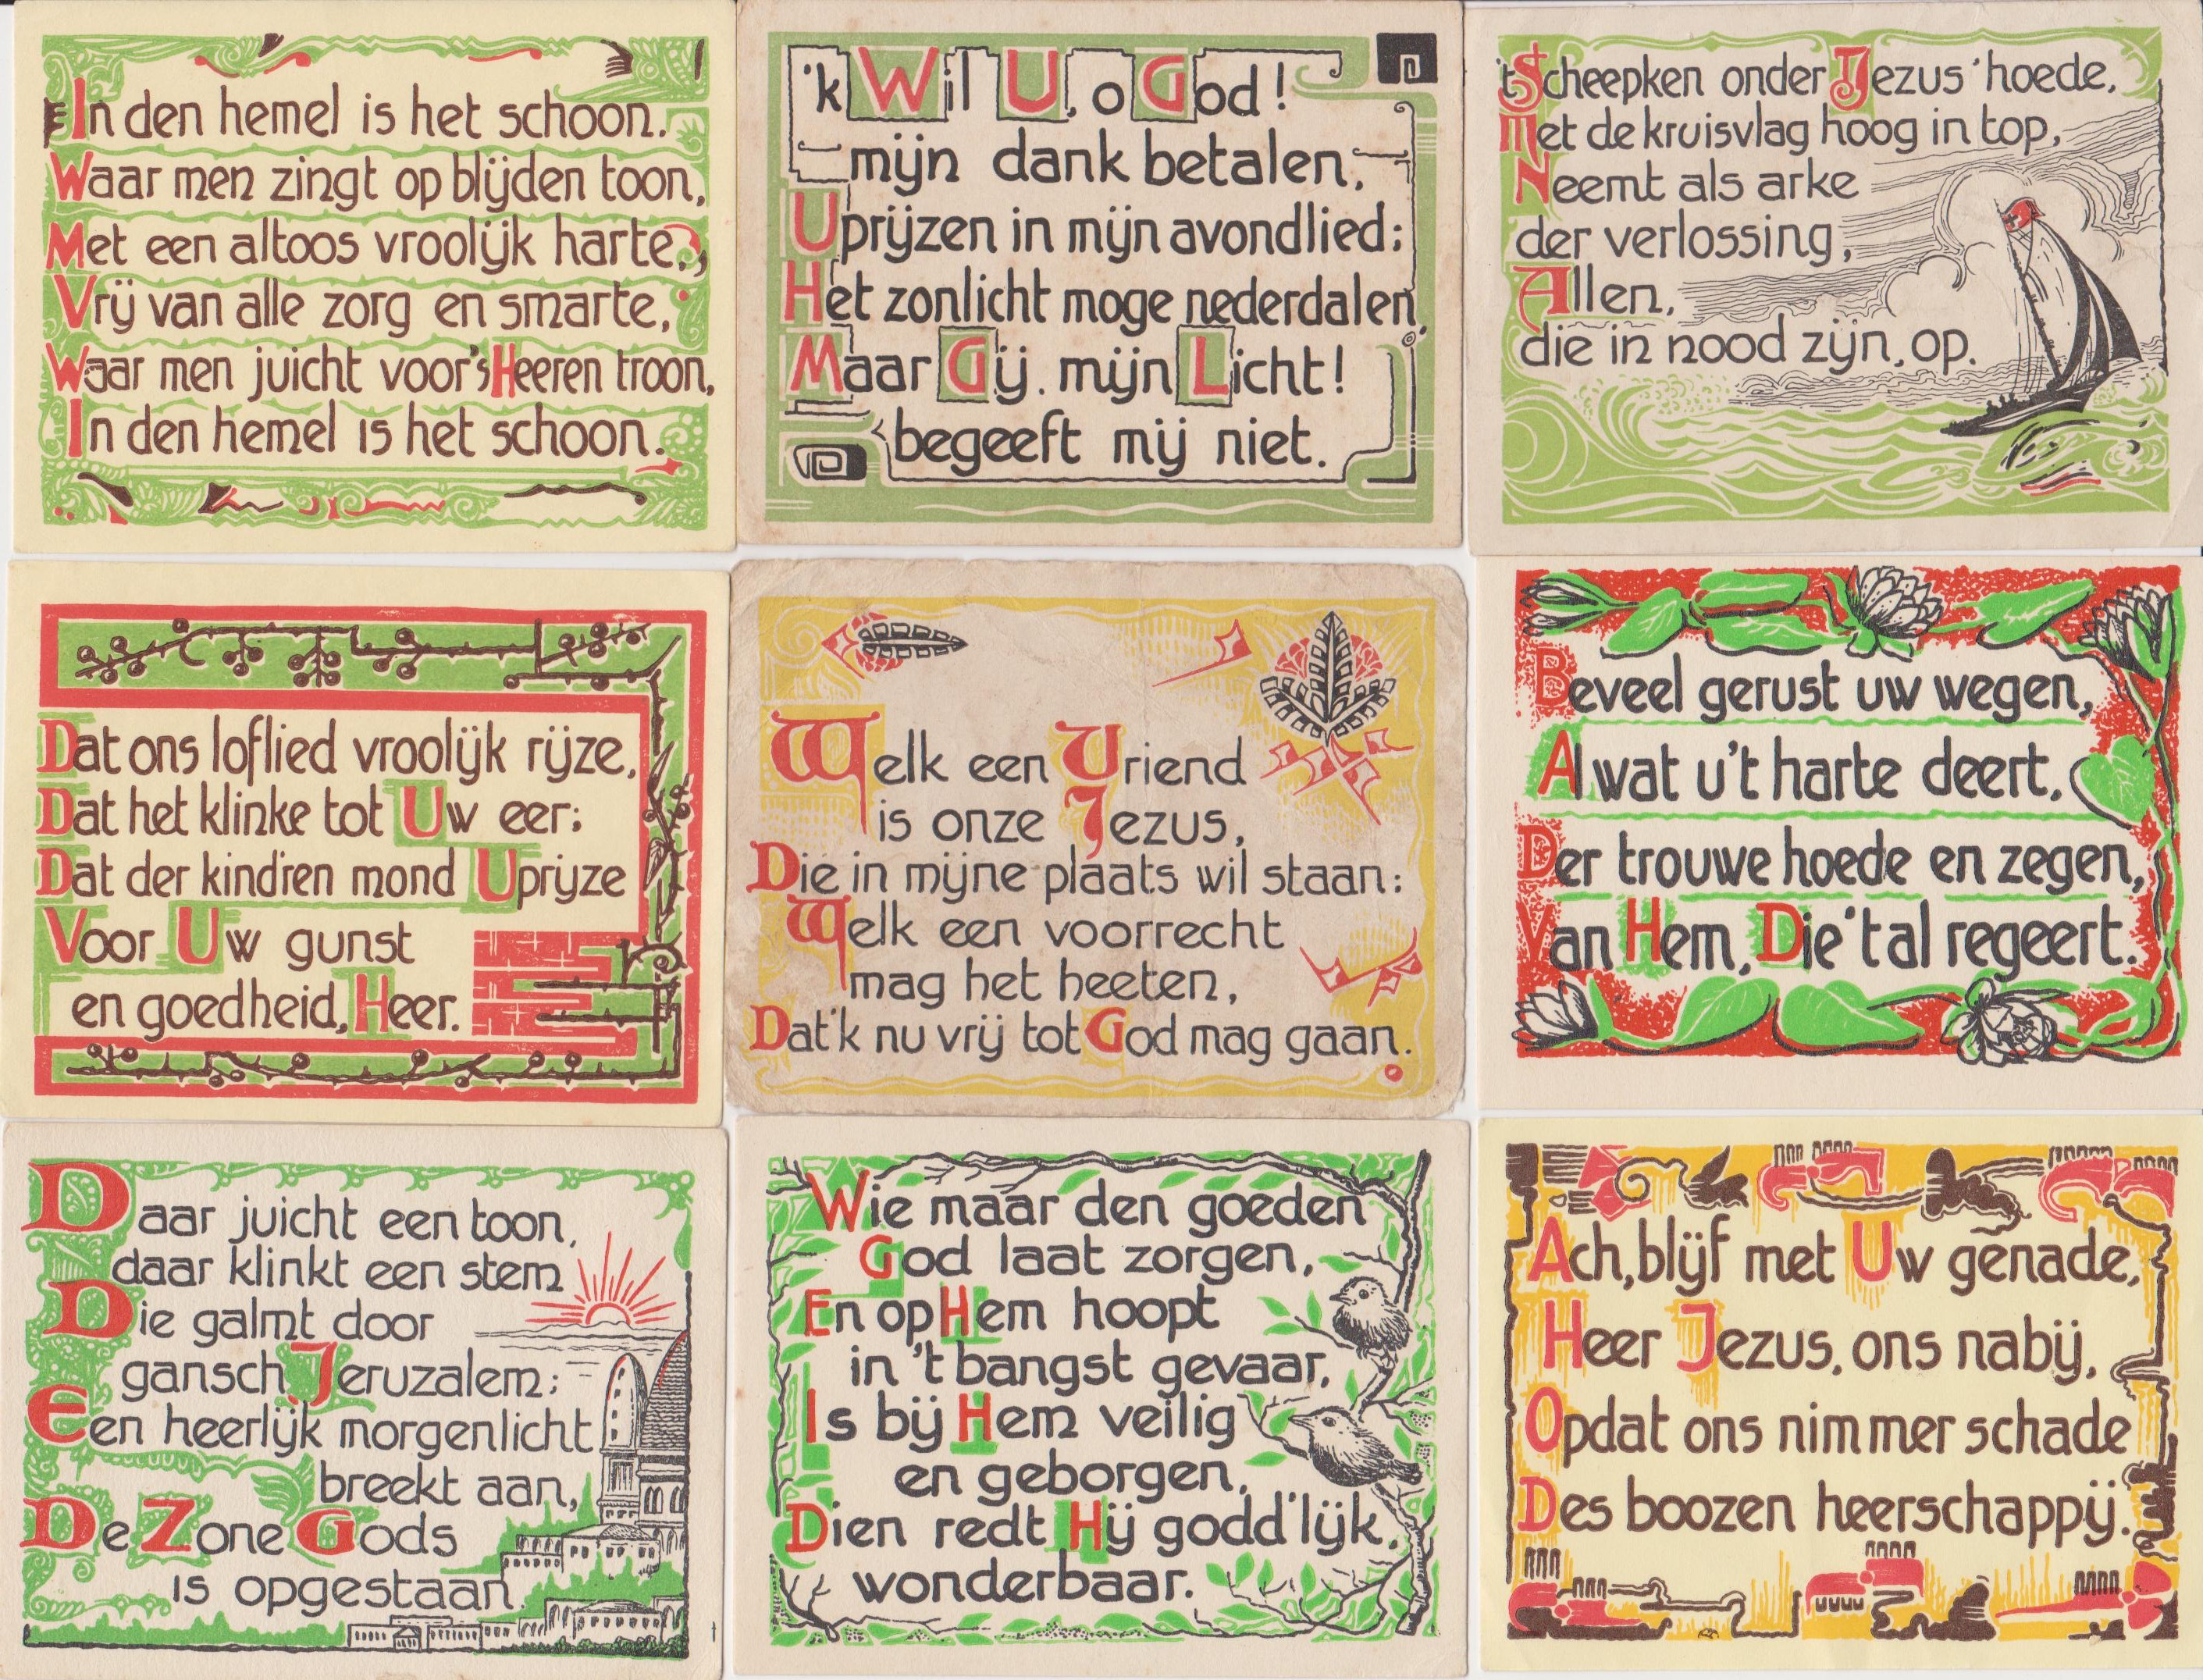 In den hemel is het schoon.
Waar men zingt op blijden toon,
Met een altoos vroolijk harte,
Vrij van alle zorg en smarte,
Waar men juicht voor's Heeren troon,
In den hemel is het schoon.
'k Wil U, o God!
mijn dank betalen,
U prijzen in mijn avondlied;
Het zonlicht moge nederdalen,
Maar Gij, mijn Licht!
begeeft mij niet.
't Scheepken onder Jezus' hoede,
Met de kruisvlag hoog in top,
Neemt als arke
der verlossing,
Allen,
die in nood zijn, op.
Dat ons loflied vroolijk rijze,
Dat het klinke tot Uw eer;
Dat der kind'ren mond U prijze
Voor Uw gunst
en goedheid, Heer.
Welk een Vriend
is onze Jezus,
Die in mijne plaats wil staan:
Welk een voorrecht
mag het heeten,
Dat 'k nu vrij tot God mag gaan.
Beveel gerust uw wegen,
Al wat u 't harte deert,
Der trouwe hoede en zegen,
Van Hem, Die 't al regeert.
Daar juicht een toon,
daar klinkt een stem
Die galmt door
gansch Jeruzalem;
Een heerlijk morgenlicht
breekt aan,
De Zone Gods
is opgestaan.
Wie maar den goeden
God laat zorgen,
En op Hem hoopt
in 't bangst gevaar,
Is bij Hem veilig
en geborgen,
Dien redt Hij godd'lijk,
wonderbaar.
Ach, blijf met Uw genade,
Heer Jezus, ons nabij,
Opdat ons nimmer schade
Des boozen heerschappij.